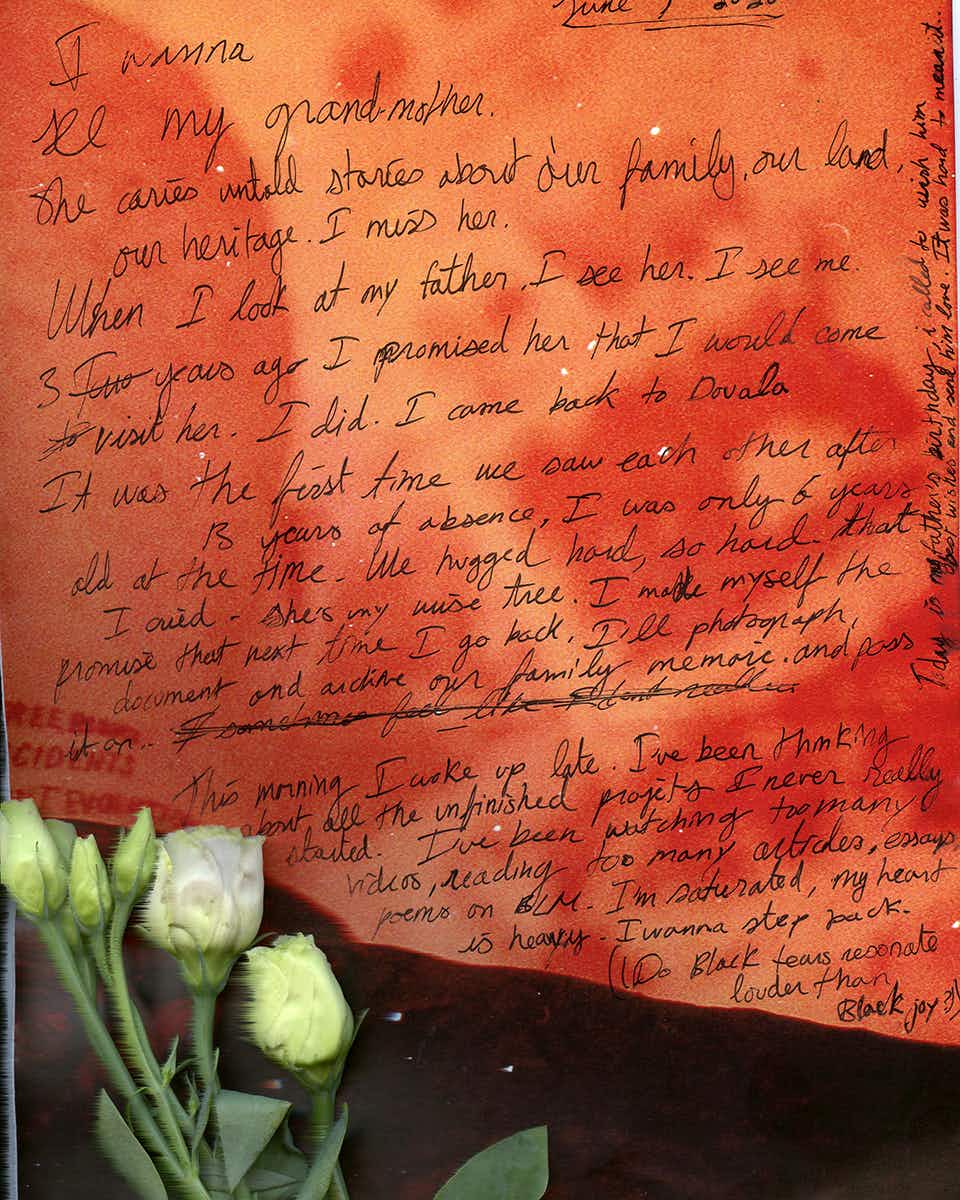 June 2020
I wanna
see my grand-mother.
She caries untold stories about our family, our land,
our heritage. I miss her.
When I look at my father, I see her. I see me.
3 Two years ago I promised her that I would come
to visit her. I did. I came back to Douala
It was the first time we saw each other after
13 years of absence, I was only 6 years
old at the time. We hugged hard, so hard. that
I cried - she's my wise tree. I made myself the
promise that next time I go back, I'll photograph,
document and archive our family memorie. and pass
it on.. I sometimes feel like I dont really
This morning I woke up late. I've been thinking
about all the unfinished projets I never really
started. I've been watching too many
videos, reading too many articles, essays,
poems on BLM. I'm saturated, my heart
is heavy - I wanna step back.
(Do Black tears resonate
louder than
Black joy ?)
Today is my father's birthday, i called to wish him
best wishes and send him love. It was hard to mean it.
CIDENTS